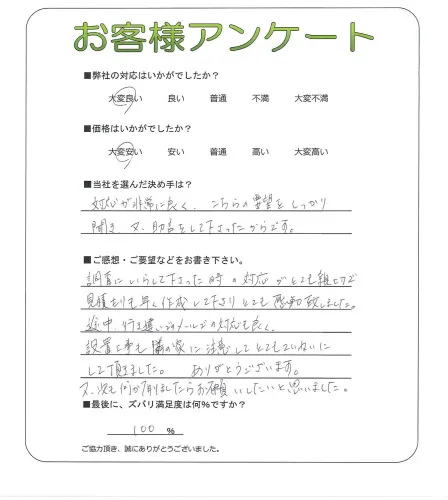 お客様アンケート
■弊社の対応はいかがでしたか?
大変良い 良い 普通 不満 大変不満
■価格はいかがでしたか?
大変安い 安い 普通 高い 大変高い
■当社を選んだ決め手は?
対応が非常に良く、こちらの要望をしっかり
聞き 又、助言をして下さったからです。
■ご感想・ご要望などをお書き下さい。
調査にいらして下さった時の対応がとても親切で
見積りも早く作成して下さりとても感謝致しました。
途中、行き違いメールでの対応も良く、
設置工事も隣の家に注意してとてもていねいに
して頂きました。 ありがとうございます。
又、次も何か有りましたらお願いしたいと思いました。
■最後に、ズバリ満足度は何%ですか?
100 %
ご協力頂き、誠にありがとうございました。